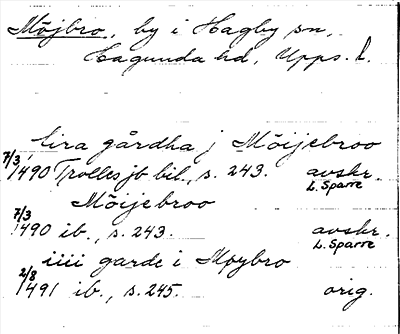 Möjbro, by i Hagby sn,
Hagunda hd, Upps. l.
tira gårdha j Möijebroo
7/3 1490 Trolles jb bil., s. 243. avskr. L. Sparre
Möijebroo
7/3 1490 ib., s. 243. avskr. L. Sparre
iiii garde i Mpybro
2/8 1491 ib., s. 245. orig.